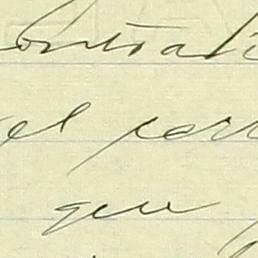 contrat
el par
que